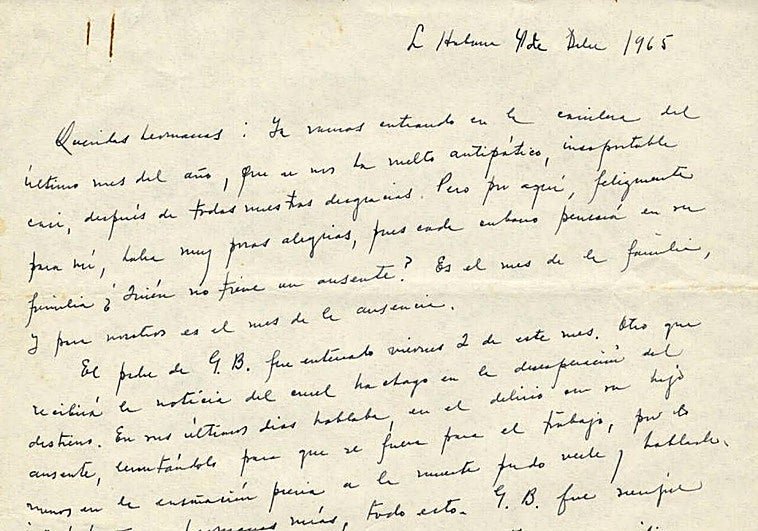 La Habana 4 de Dbre 1965
Queridas hermanas: Ya vamos entrando en la carrilera del
último mes del año, que se nos ha vuelto antipático, insoportable
casi, después de todas nuestras desgracias. Pero por aquí, felizmente
para mí, habrá muy pocas alegrías, pues cada cubano pensará en su
familia ¿Quién no tiene un ausente? Es el mes de la familia,
y para nosotros es el mes de la ausencia.
El padre de G. B. fue enterrado viernes 2 de este mes. Otro que
recibirá la noticia del cruel hachazo en la desesperación del
destierro. En sus últimos días hablaba, en el delirio con su hijo
ausente, levantándolo para que se fuera para el trabajo, por lo
menos en la ensoñación previa a la muerte pudo verle y hablarle.
hermanas mías, todo esto. G. B. fue siempre